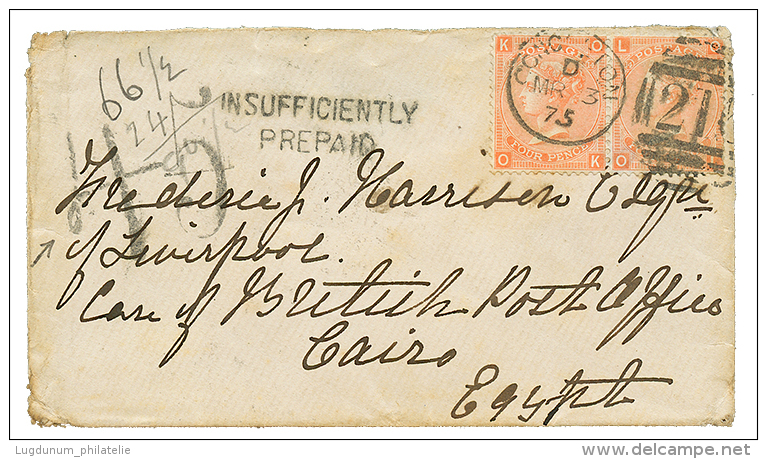 K O
POSTAGE
FOUR PENCE
O K
L O
POSTAGE
O
CONGLETON
D
MR 3
75
21
66 1/2
24
INSUFFICIENTLY
PREPAID
Frederic J. Harrison Esqre
of Liverpool.
Care of British Post Office
Cairo
Egypt
Lugdunum_philatelie
delcampe.net